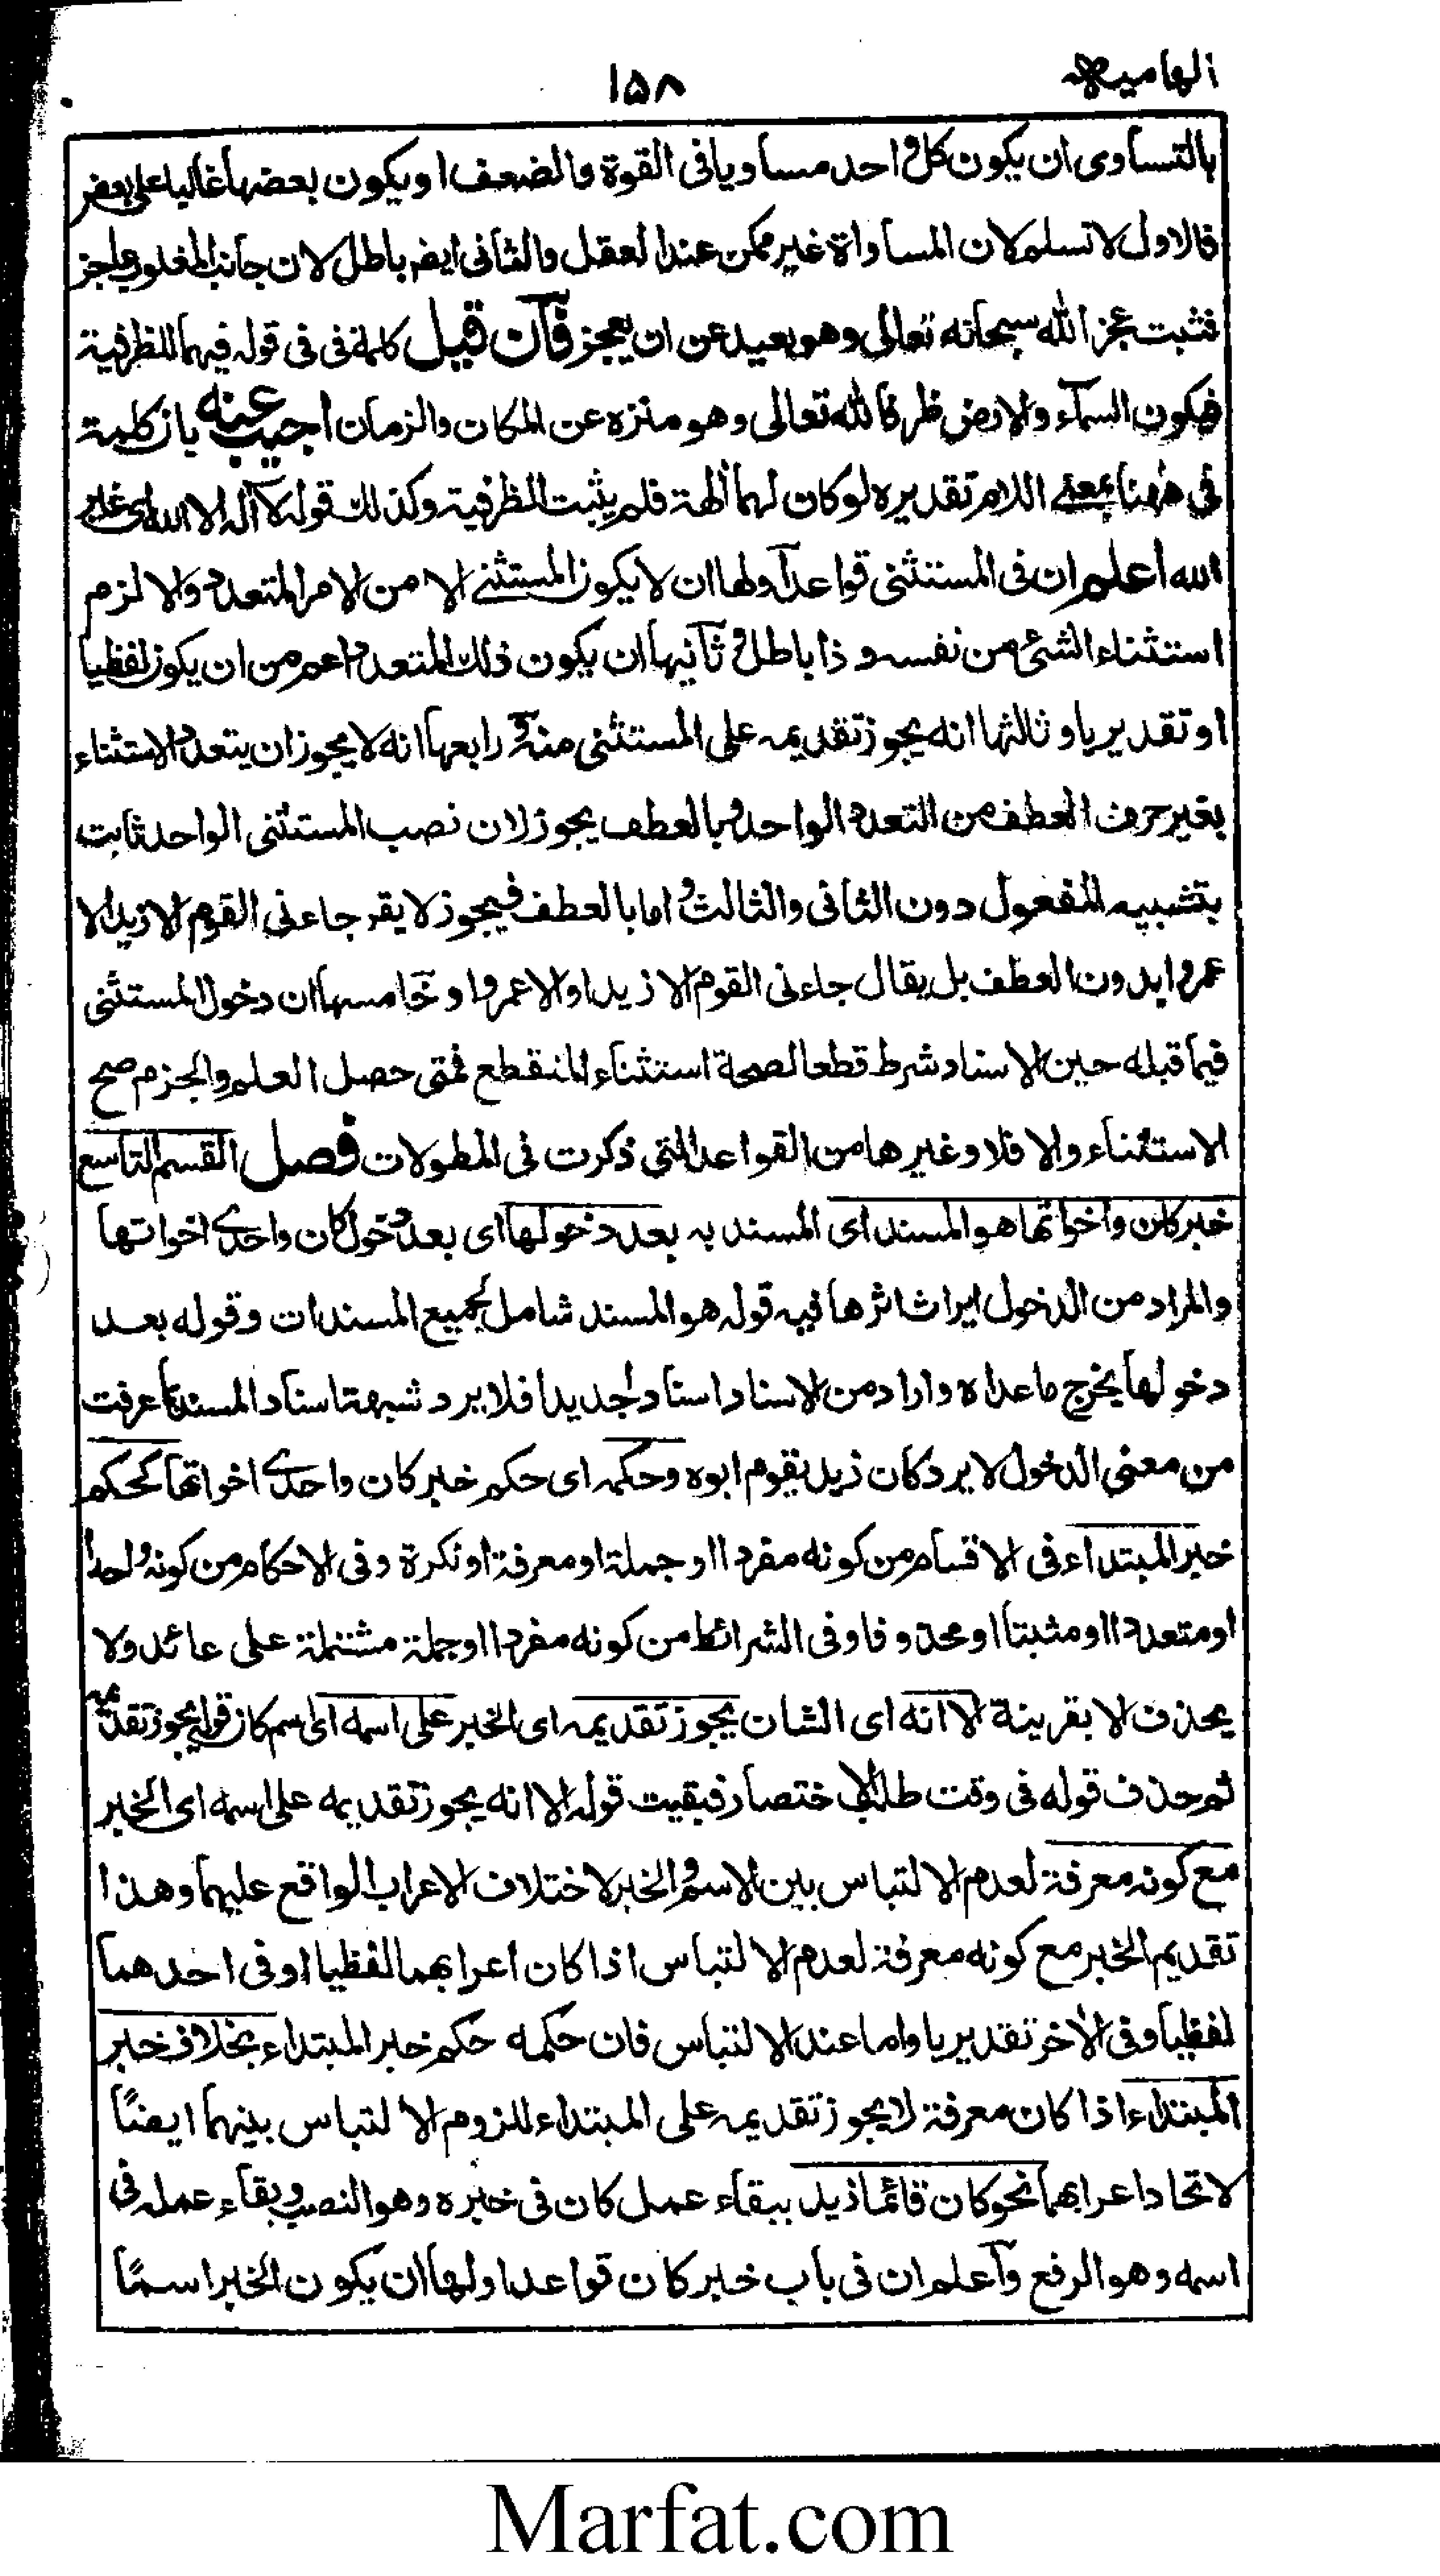 الهاميه
١٥٨
بالتساوی ان یکون کل واحد مساویا فی القوة والضعف او یکون بعضها غالبا علی بعض
فالاول لا نسلم لان المساواة غیر ممکن عند العقل والثانی ایض باطل لان جانب المغلوب عاجز
فثبت عجز الله سبحانه تعالی وهو بعید عن ان یعجز فان قیل کلمة فی فی قوله فیهما للظرفیة
فیکون السمآء والارض ظرفا لله تعالی وهو منزه عن المکان والزمان اجیب عنه بان کلمة
فی ههنا بمعنی اللام تقدیره لو کان لهما اٰلهة فلم یثبت الظرفیة وکذلک قوله لا اله الا الله ای غیر
الله اعلم ان فی المستثنی قواعد اولها ان لا یکون المستثنی الا من الامر المتعدد والا لزم
استثناء الشئ من نفسه و ذا باطل و ثانیها ان یکون ذلک المتعدد اعم من ان یکون لفظیا
او تقدیریا و ثالثها انه یجوز تقدیمه علی المستثنی منه و رابعها انه لا یجوز ان یتعدد الاستثناء
بغیر حرف العطف من التعدد الواحد و بالعطف یجوز لان نصب المستثنی الواحد ثابت
بتشبیه المفعول دون الثانی والثالث و اما بالعطف فیجوز لا یقر جاءنی القوم الا زیدا الا
عمروا بدون العطف بل یقال جاءنی القوم الا زیدا و الا عمروا و خامسها ان دخول المستثنی
فیما قبله حین الاسناد شرط قطعا لصحة استثناء المنقطع فمتی حصل العلم والجزم صح
الاستثناء والا فلا وغیرها من القواعد التی ذکرت فی المطولات فصل القسم التاسع
خبر کان واخواتها هو المسند ای المسند به بعد دخولها ای بعد دخول کان واحدی اخواتها
والمراد من الدخول ایراث اثرها فیه قوله هو المسند شامل لجمیع المسندات وقوله بعد
دخولها یخرج ما عداه واراد من الاسناد اسنادا جدیدا فلا یرد شبهة اسناد المسند کما عرفت
من معنی الدخول لا یرد کان زید یقوم ابوه وحکمه ای حکم خبر کان واحدی اخواتها کحکم
خبر المبتداء فی الاقسام من کونه مفردا او جملة او معرفة او نکرة وفی الاحکام من کونه واحدا
او متعددا او مثبتا او محذوفا وفی الشرائط من کونه مفردا او جملة مشتملة علی عائد ولا
یحذف الا بقرینة الا انه ای الشان یجوز تقدیمه ای الخبر علی اسمه ای اسم کان قوله یجوز تقدیمه
ثم حذف قوله فی وقت طلب الاختصار فبقیت قوله الا انه یجوز تقدیمه علی اسمه ای الخبر
مع کونه معرفة لعدم الالتباس بین الاسم والخبر لاختلاف الاعراب الواقع علیهما وهذا
تقدیم الخبر مع کونه معرفة لعدم الالتباس اذا کان اعرابهما لفظیا او فی احدهما
لفظیا وفی الاٰخر تقدیریا واما عند الالتباس فان حکمه حکم خبر المبتداء بخلاف خبر
المبتداء اذا کان معرفة لا یجوز تقدیمه علی المبتداء للزوم الالتباس بینهما ایضًا
لاتحاد اعرابهما نحو کان قائما زید ببقاء عمل کان فی خبره وهو النصب و بقاء عمله فی
اسمه وهو الرفع واعلم ان فی باب خبر کان قواعد اولها ان یکون الخبر اسمًا
Marfat.com